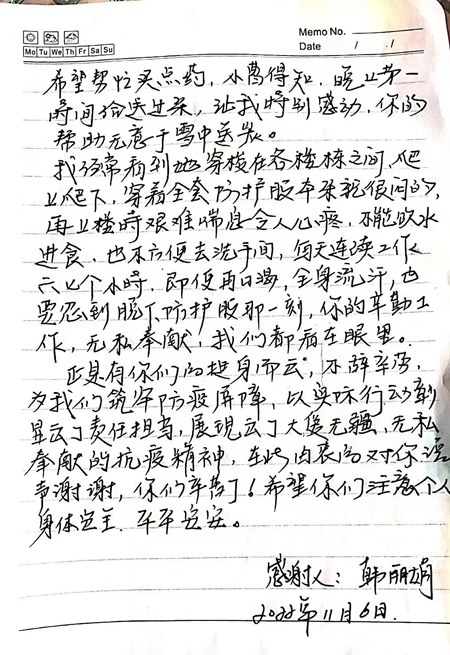 Memo No.
Mo Tu We Th Fr Sa Su
Date / /
希望帮忙买点药,小曹得知,晚上第一
时间给送过来,让我特别感动,你的
帮助无意于雪中送炭。
我经常看到她穿梭在各楼栋之间,爬
上爬下,穿着全套防护服本来就很闷的,
再上楼时艰难喘息令人心疼,不能饮水
进食,也不方便去洗手间,每天连续工作
六七个小时,即便再口渴,全身流汗,也
要忍到脱下防护服那一刻,你的辛勤工
作,无私奉献,我们都看在眼里。
正是有你们的挺身而出,不辞辛劳,
为我们筑牢防疫屏障,以实际行动彰
显出了责任担当,展现出了大爱无疆,无私
奉献的抗疫精神,在此由衷的对你说
声谢谢,你们辛苦了!希望你们注意个人
身体安全,平平安安。
感谢人:韩丽娟
2022年11月6日.